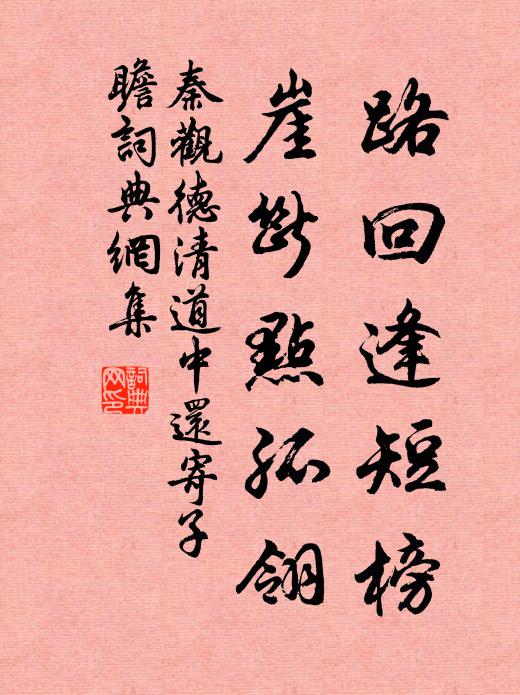 路回逢短榜
崖斷點孤翎
秦觀德清道中還寄子
瞻詞典網集
詞典网印